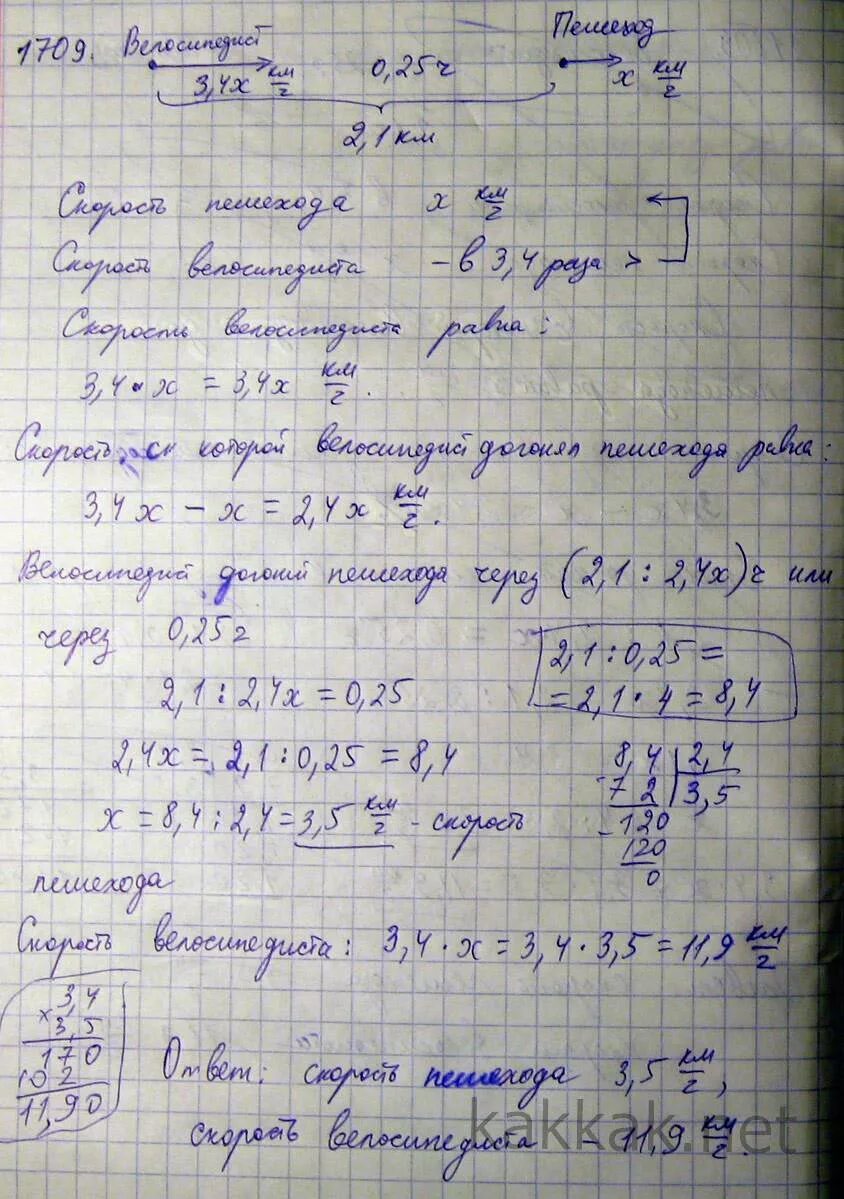 1709. Велосипедист Пешеход
3,4x км/ч 0,25ч x км/ч
2,1 км
Скорость пешехода x км/ч
Скорость велосипедиста – в 3,4 раза >
Скорость велосипедиста равна:
3,4 · x = 3,4x км/ч.
Скорость, с которой велосипедист догонял пешехода равна:
3,4x – x = 2,4x км/ч.
Велосипедист догонит пешехода через (2,1 : 2,4x) ч или
через 0,25 ч
2,1 : 2,4x = 0,25
2,1 : 0,25 =
= 2,1 · 4 = 8,4
2,4x = 2,1 : 0,25 = 8,4
x = 8,4 : 2,4 = 3,5 км/ч - скорость
пешехода
8,4 | 2,4
-7 2 | 3,5
-120
120
0
Скорость велосипедиста: 3,4 · x = 3,4 · 3,5 = 11,9 км/ч
3,4
× 3,5
170
102
11,90
Ответ: скорость пешехода 3,5 км/ч,
скорость велосипедиста – 11,9 км/ч.
kakkak.net